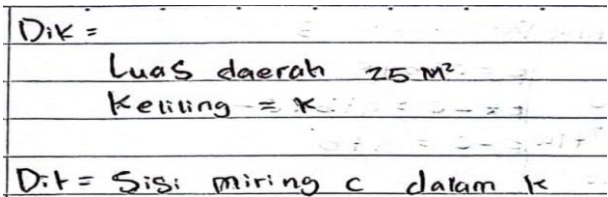 Dik =
Luas daerah 25 M²
Keliling = K
Dit = Sisi miring c dalam k